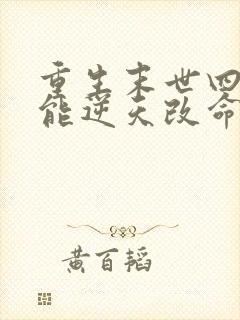 重生末世四
能逆天改命
黄百韬